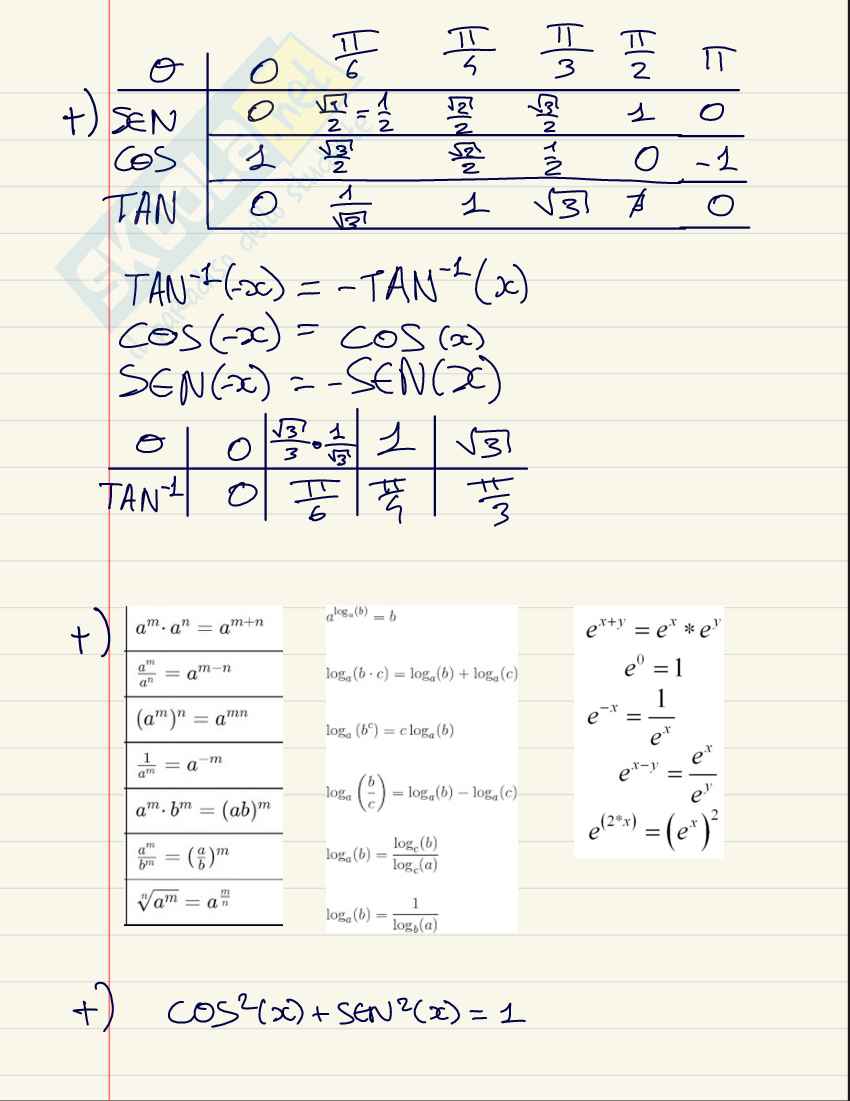 θ 0 π/6 π/4 π/3 π/2 π
+) SEN 0 √1/2 = 1/2 √2/2 √3/2 1 0
COS 1 √3/2 √2/2 1/2 0 -1
TAN 0 1/√3 1 √3 ∄ 0
SKUOLA.net
il paradiso dello studente
TAN⁻¹(-x) = -TAN⁻¹(x)
COS(-x) = COS(x)
SEN(-x) = -SEN(x)
θ 0 √3/3 • 1/√3 1 √3
TAN⁻¹ 0 π/6 π/4 π/3
+)
aᵐ · aⁿ = aᵐ⁺ⁿ
aᵐ/aⁿ = aᵐ⁻ⁿ
(aᵐ)ⁿ = aᵐⁿ
1/aᵐ = a⁻ᵐ
aᵐ · bᵐ = (ab)ᵐ
aᵐ/bᵐ = (a/b)ᵐ
ⁿ√(aᵐ) = a^(m/n)
a^(logₐ(b)) = b
logₐ(b · c) = logₐ(b) + logₐ(c)
logₐ(bᶜ) = c logₐ(b)
logₐ(b/c) = logₐ(b) − logₐ(c)
logₐ(b) = log_c(b)/log_c(a)
logₐ(b) = 1/log_b(a)
eˣ⁺ʸ = eˣ * eʸ
e⁰ = 1
e⁻ˣ = 1/eˣ
eˣ⁻ʸ = eˣ/eʸ
e^(2*x) = (eˣ)²
+) COS²(x) + SEN²(x) = 1